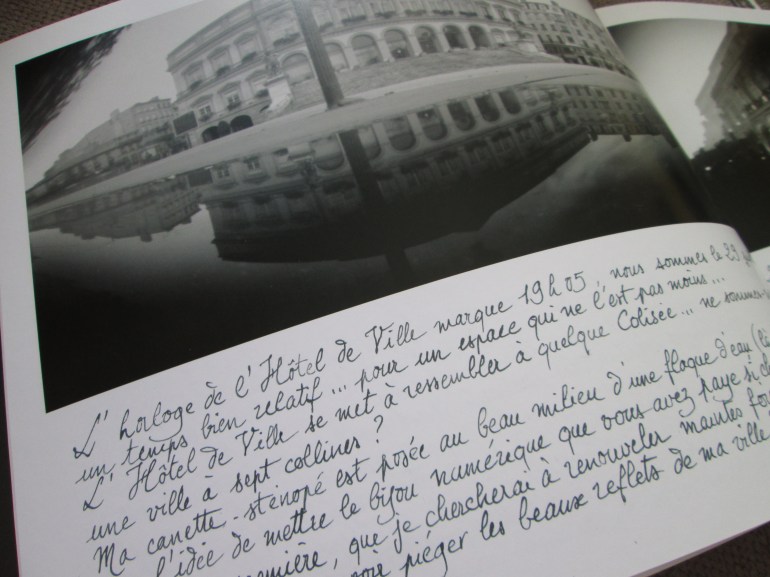 L'horloge de l'Hôtel de Ville marque 19h05, nous sommes le 29
un temps bien relatif... pour un espace qui ne l'est pas moins...
L'Hôtel de Ville se met à ressembler à quelque Colisée... ne sommes-
une ville à sept collines ?
Ma canette-sténopé est posée au beau milieu d'une flaque d'eau
l'idée de mettre le bijou numérique que vous avez payé si
que je chercherai à renouveler maintes
piéger les beaux reflets de ma ville